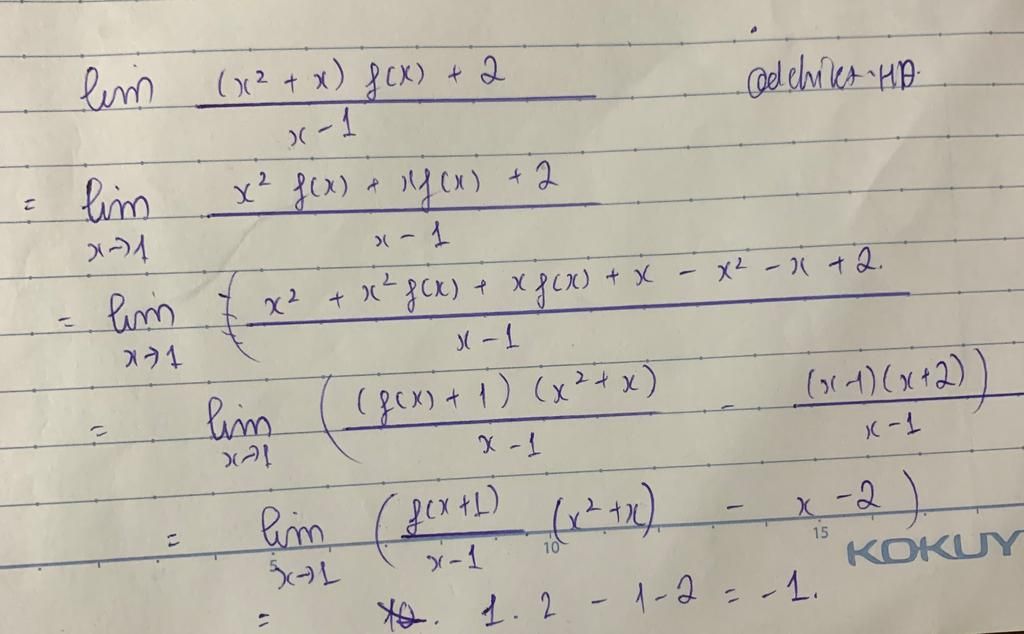 lim (x² + x) f(x) + 2 / x - 1
= lim x→1 x² f(x) + x f(x) + 2 / x - 1
= lim x→1 ( x² + x² f(x) + x f(x) + x - x² - x + 2. / x - 1
= lim x→1 ( (f(x) + 1) (x² + x) / x - 1 - (x-1)(x+2) / x - 1 )
= lim x→1 ( f(x+1) / x-1 (x² + x) - x - 2 )
= 1. 2 - 1 - 2 = -1.
5 10 15
KOKUY